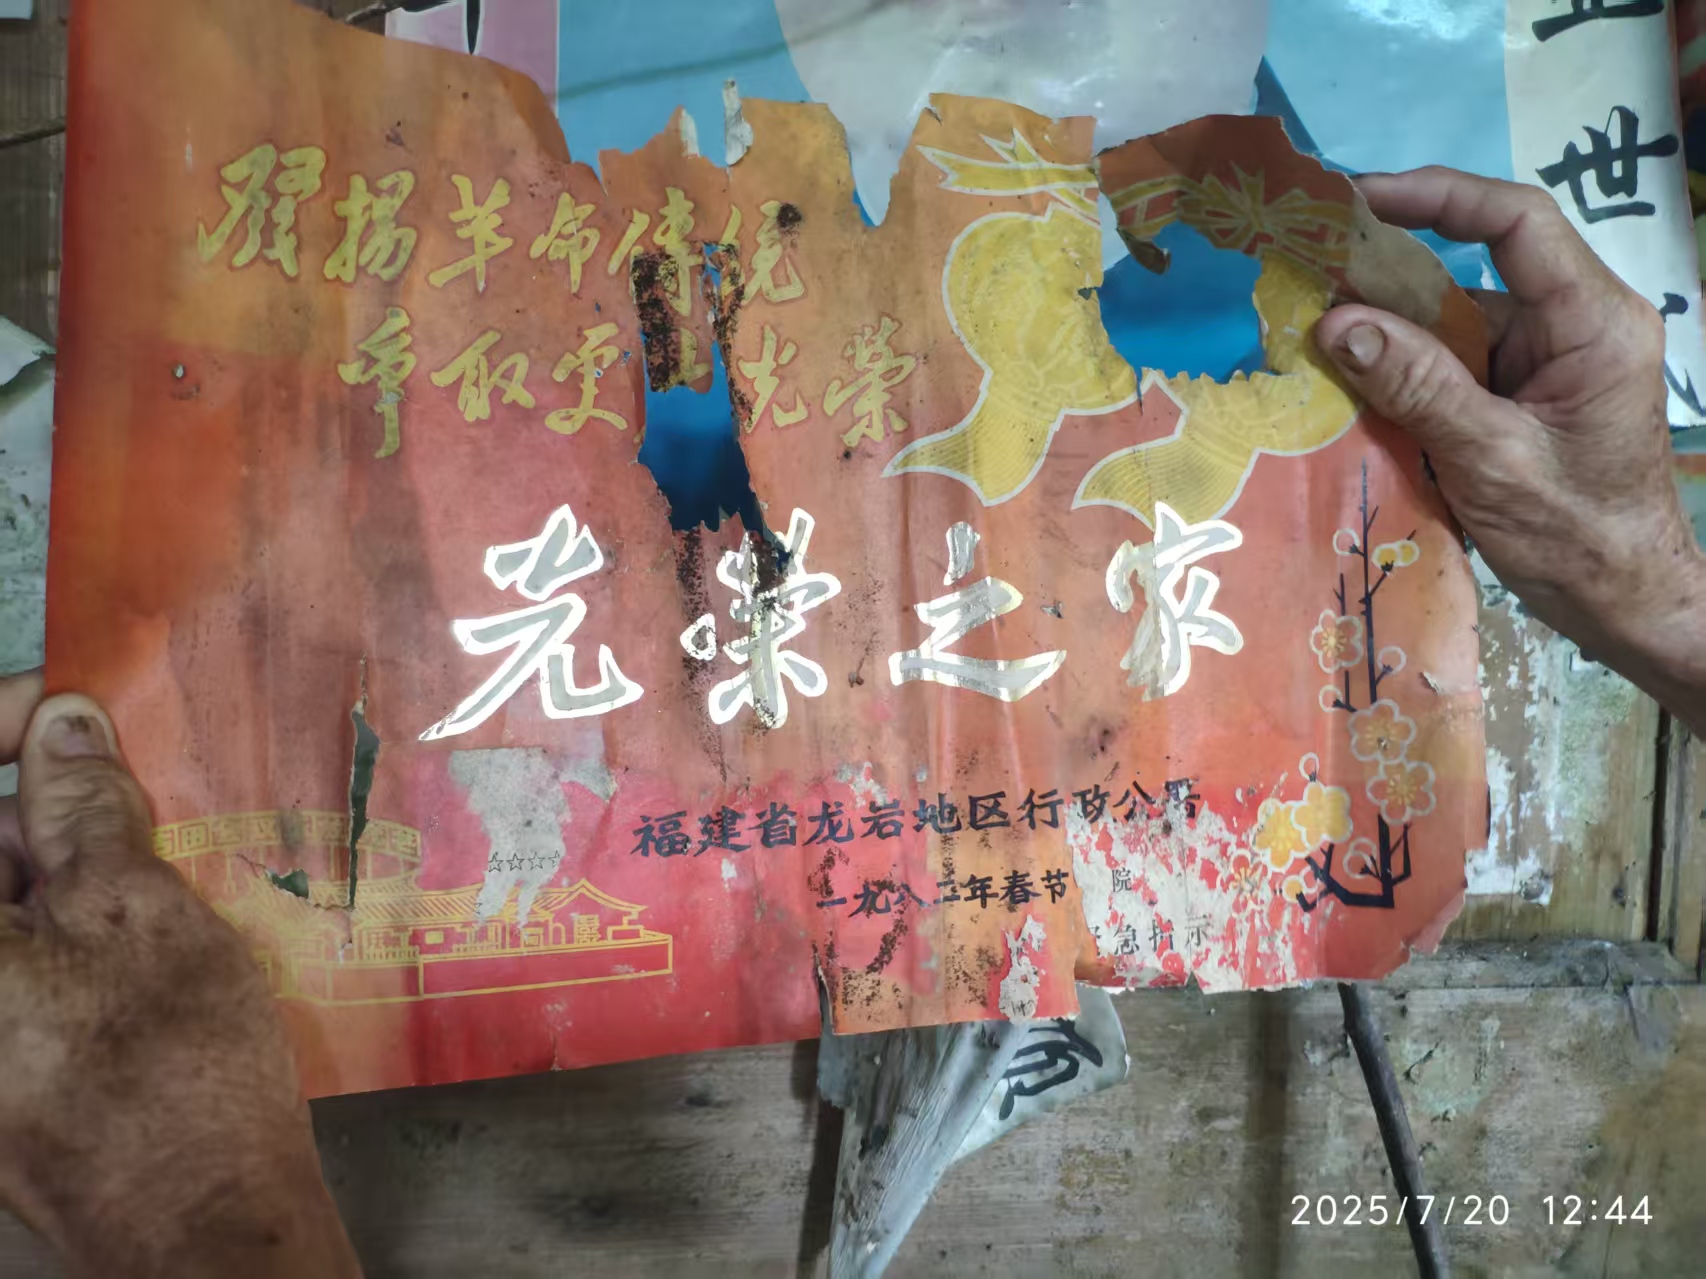 發揚革命傳统
争取更 光荣
光荣之家
福建省龙岩地区行政公署
一九八二年春节
院
急指示
世
2025/7/20 12:44